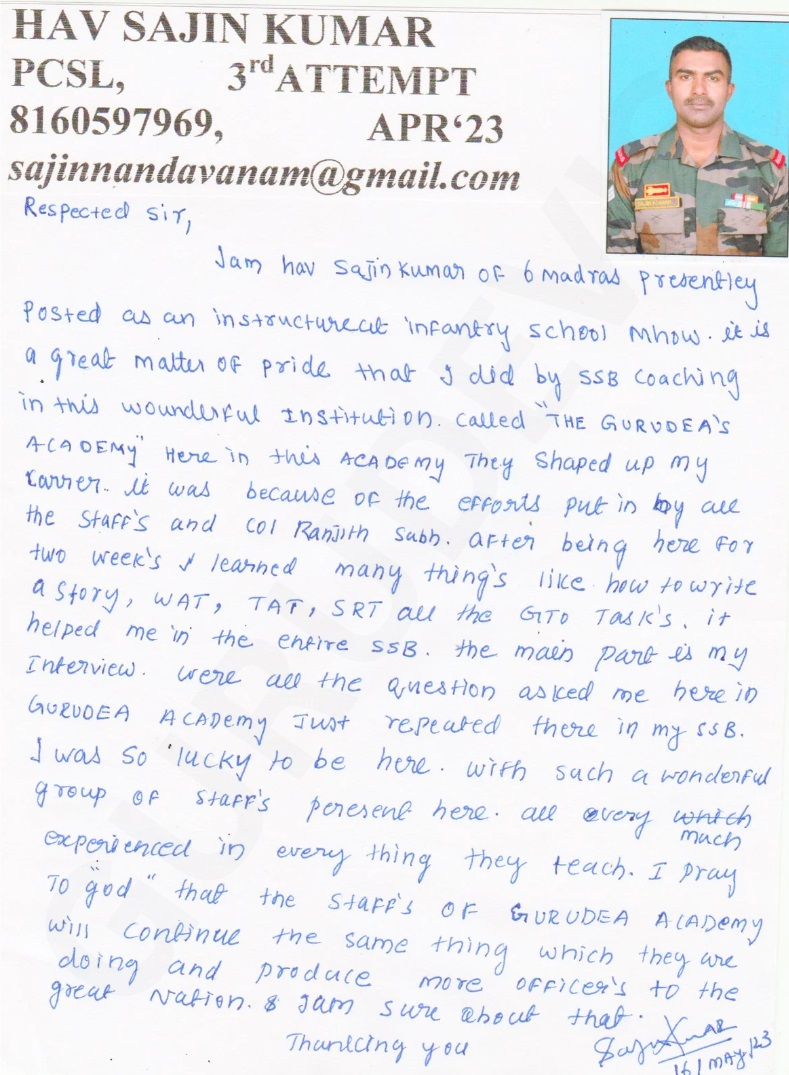 HAV SAJIN KUMAR
PCSL, 3rd ATTEMPT
8160597969, APR‘23
sajinnandavanam@gmail.com
SAJIN KUMAR
Respected Sir,
Iam hav Sajin Kumar of 6 madras presentley
posted as an instructureat infantry school Mhow. it is
a great matter of pride that I did by SSB coaching
in this wounderful Institution. called "THE GURUDEA's
ACADEMY" Here in this ACADEMY They Shaped up my
Carrer.. It was because of the efforts put in by all
the Staff's and Col Ranjith Sabh. After being here for
two week's I learned many thing's like how to write
a story, WAT, TAT, SRT all the GTO Task's. it
helped me in the entire SSB. the main part is my
Interview. were all the question asked me here in
GURUDEA ACADEMY Just repeated there in my SSB.
I was so lucky to be here. with such a wonderful
group of staff's peresent here. all every which
much
experienced in every thing they teach. I pray
To "god" that the Staff's of GURUDEA ACADEMY
will continue the same thing which they are
doing and produce more officer's to the
great Nation. & Iam sure about that.
Thanking you
Sajin Kumar
16/MAY/23
GURUDEV